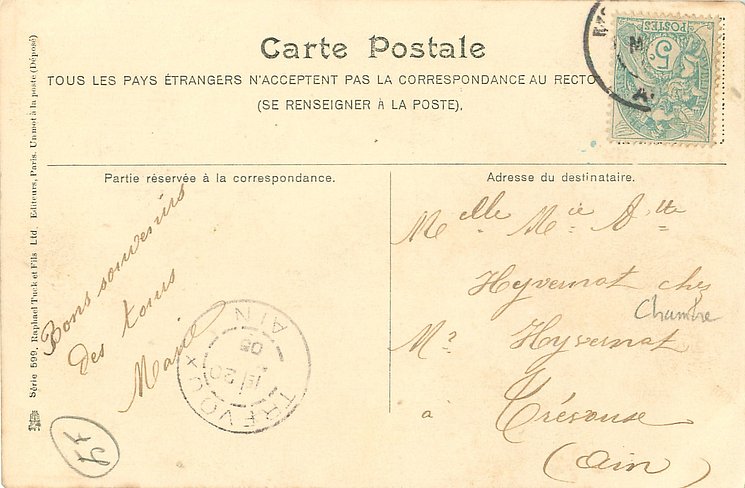 Carte Postale
TOUS LES PAYS ÉTRANGERS N'ACCEPTENT PAS LA CORRESPONDANCE AU RECTO
(SE RENSEIGNER À LA POSTE).
POSTES
5c
Partie réservée à la correspondance.
Bons souvenirs
des tous
Marie
TREVOUX
AIN
15/20
05
Série 599. Raphael Tuck et Fils Ltd. Editeurs, Paris. Un mot à la poste (Déposé)
Adresse du destinataire.
Melle Mie Atte
Hyvernat chez
Chambre
Mr Hyvernat
à Trévoux
(Ain)